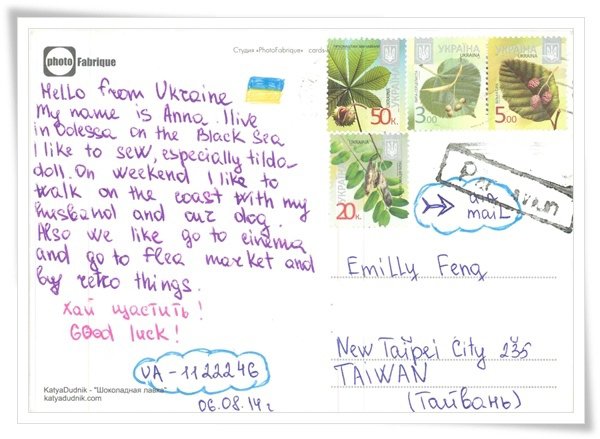 photo Fabrique
Студия «PhotoFabrique» cards-
Hello from Ukraine
My name is Anna. I live
in Odessa on the Black Sea
I like to sew, especially tilda-
doll. On weekend I like to
walk on the coast with my
husband and our dog.
Also we like go to cinema
and go to flea market and
by retro things.
Хай щастить!
Good luck!
UA-1122246
06.08.14г.
KatyaDudnik - "Шоколадная лавка"
katyadudnik.com
50к.
УКРАЇНА
3.00
УКРАЇНА
5.00
20к.
Par avion
air
mail
Emilly Feng
New Taipei City 235
TAIWAN
(Тайвань)